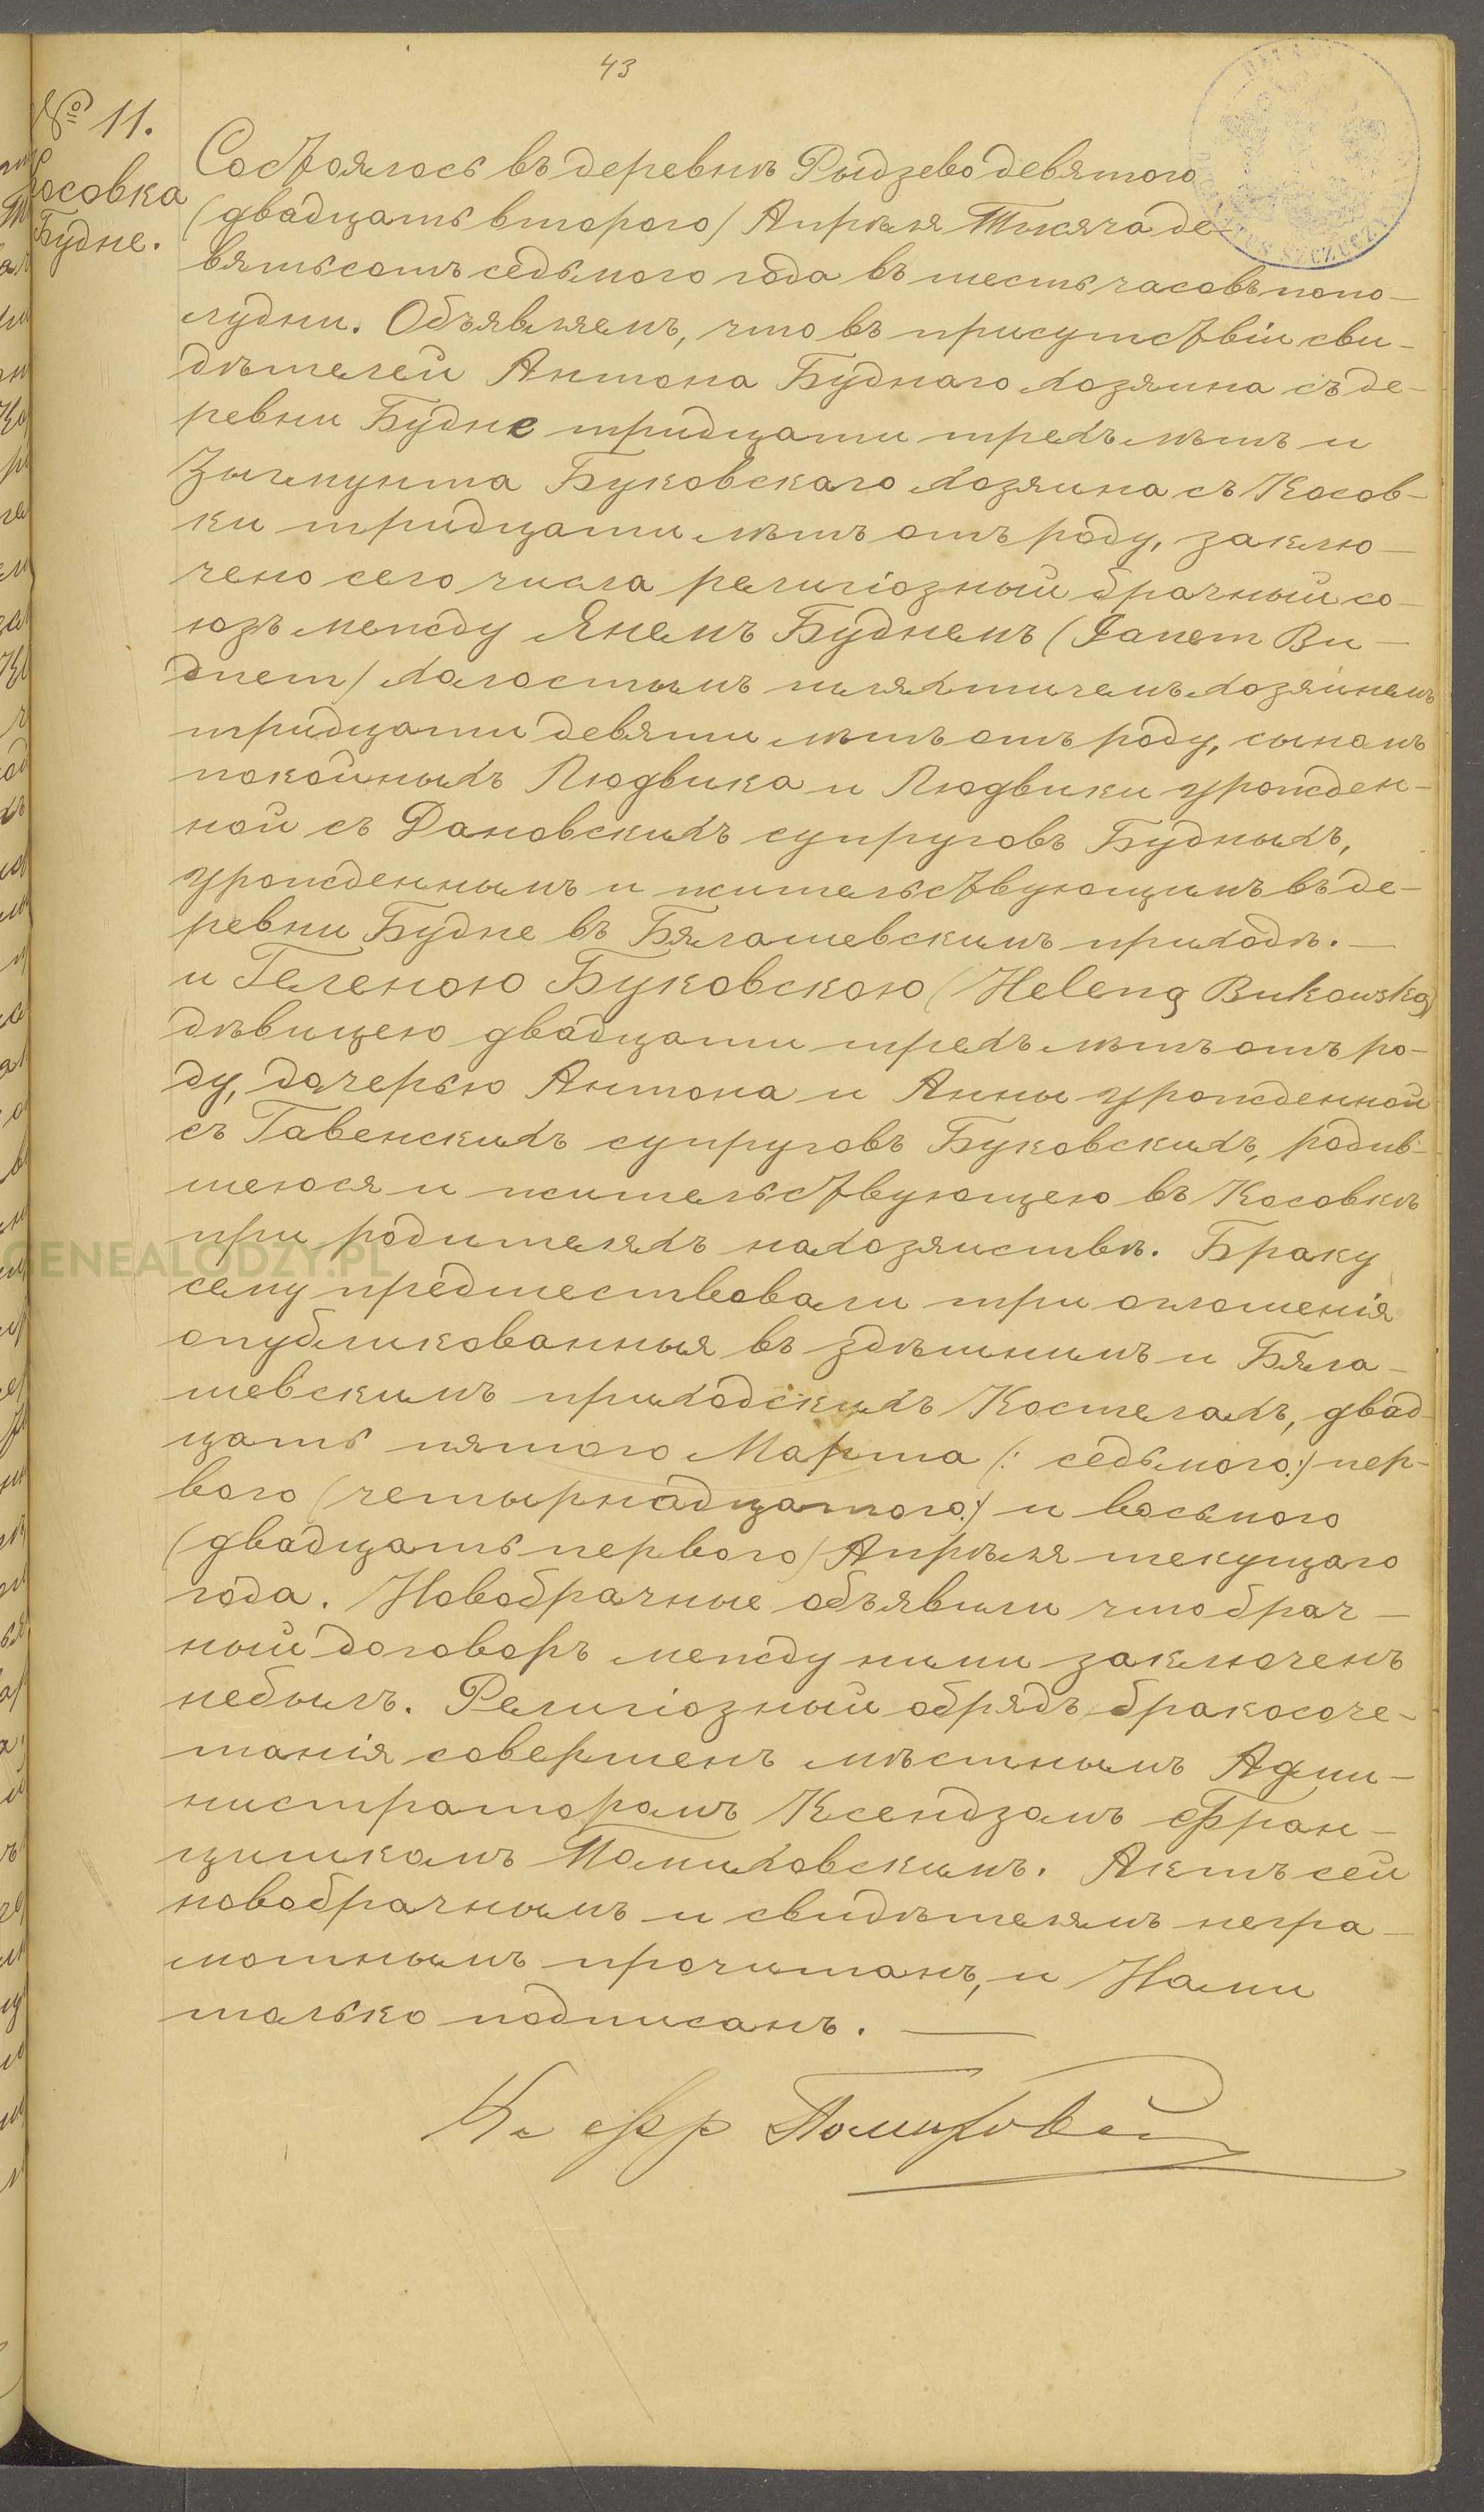 43
№ 11.
Косовка
Будне.
Состоялось въ деревнѣ Рыдзево девятого
(двадцать второго) Апрѣля Тысяча де-
вятьсотъ седьмого года въ шесть часовъ попо-
лудни. Объявляемъ, что въ присутствіи сви-
дѣтелей Антона Буднаго хозяина съ де-
ревни Будне тридцати трехъ лѣтъ и
Зыгмунта Буковскаго хозяина съ Косов-
ки тридцати лѣтъ отъ роду, заклю-
чено сего числа религіозный брачный со-
юзъ между Янемъ Буднемъ (Janem Bu-
dnem) холостымъ шляхтичемъ хозяиномъ
тридцати девяти лѣтъ отъ роду, сыномъ
покойныхъ Людвика и Людвики урожден-
ной съ Дановскихъ супруговъ Будныхъ,
урожденнымъ и жительствующимъ въ де-
ревни Будне въ Бялашевскимъ приходѣ. —
и Геленою Буковскою (Heleną Bukowską)
дѣвицею двадцати трехъ лѣтъ отъ ро-
ду, дочерью Антона и Анны урожденной
съ Гавенскихъ супруговъ Буковскихъ, родив-
шеюся и жительствующею въ Косовкѣ
при родителяхъ на хозяиствѣ. Браку
сему предшествовали три оглошенія
опубликованныя въ здѣшнимъ и Бяла-
шевскимъ приходскихъ Костелахъ, двад-
цать пятого Марта (: седьмого:) пер-
вого (четырнадцатого:) и восьмого
(двадцать первого) Апрѣля текущаго
года. Новобрачные объявили что брач-
ный договоръ между ними заключенъ
небылъ. Религіозный обрядъ бракосоче-
танія совершенъ мѣстнымъ Адми-
нистраторомъ Ксендзомъ Фран-
цишкомъ Помиховскимъ. Актъ сей
новобрачнымъ и свидѣтелямъ негра-
мотнымъ прочитанъ, и Нами
только подписанъ. —
Кс Фр Помиховскій
GENEALODZY.PL